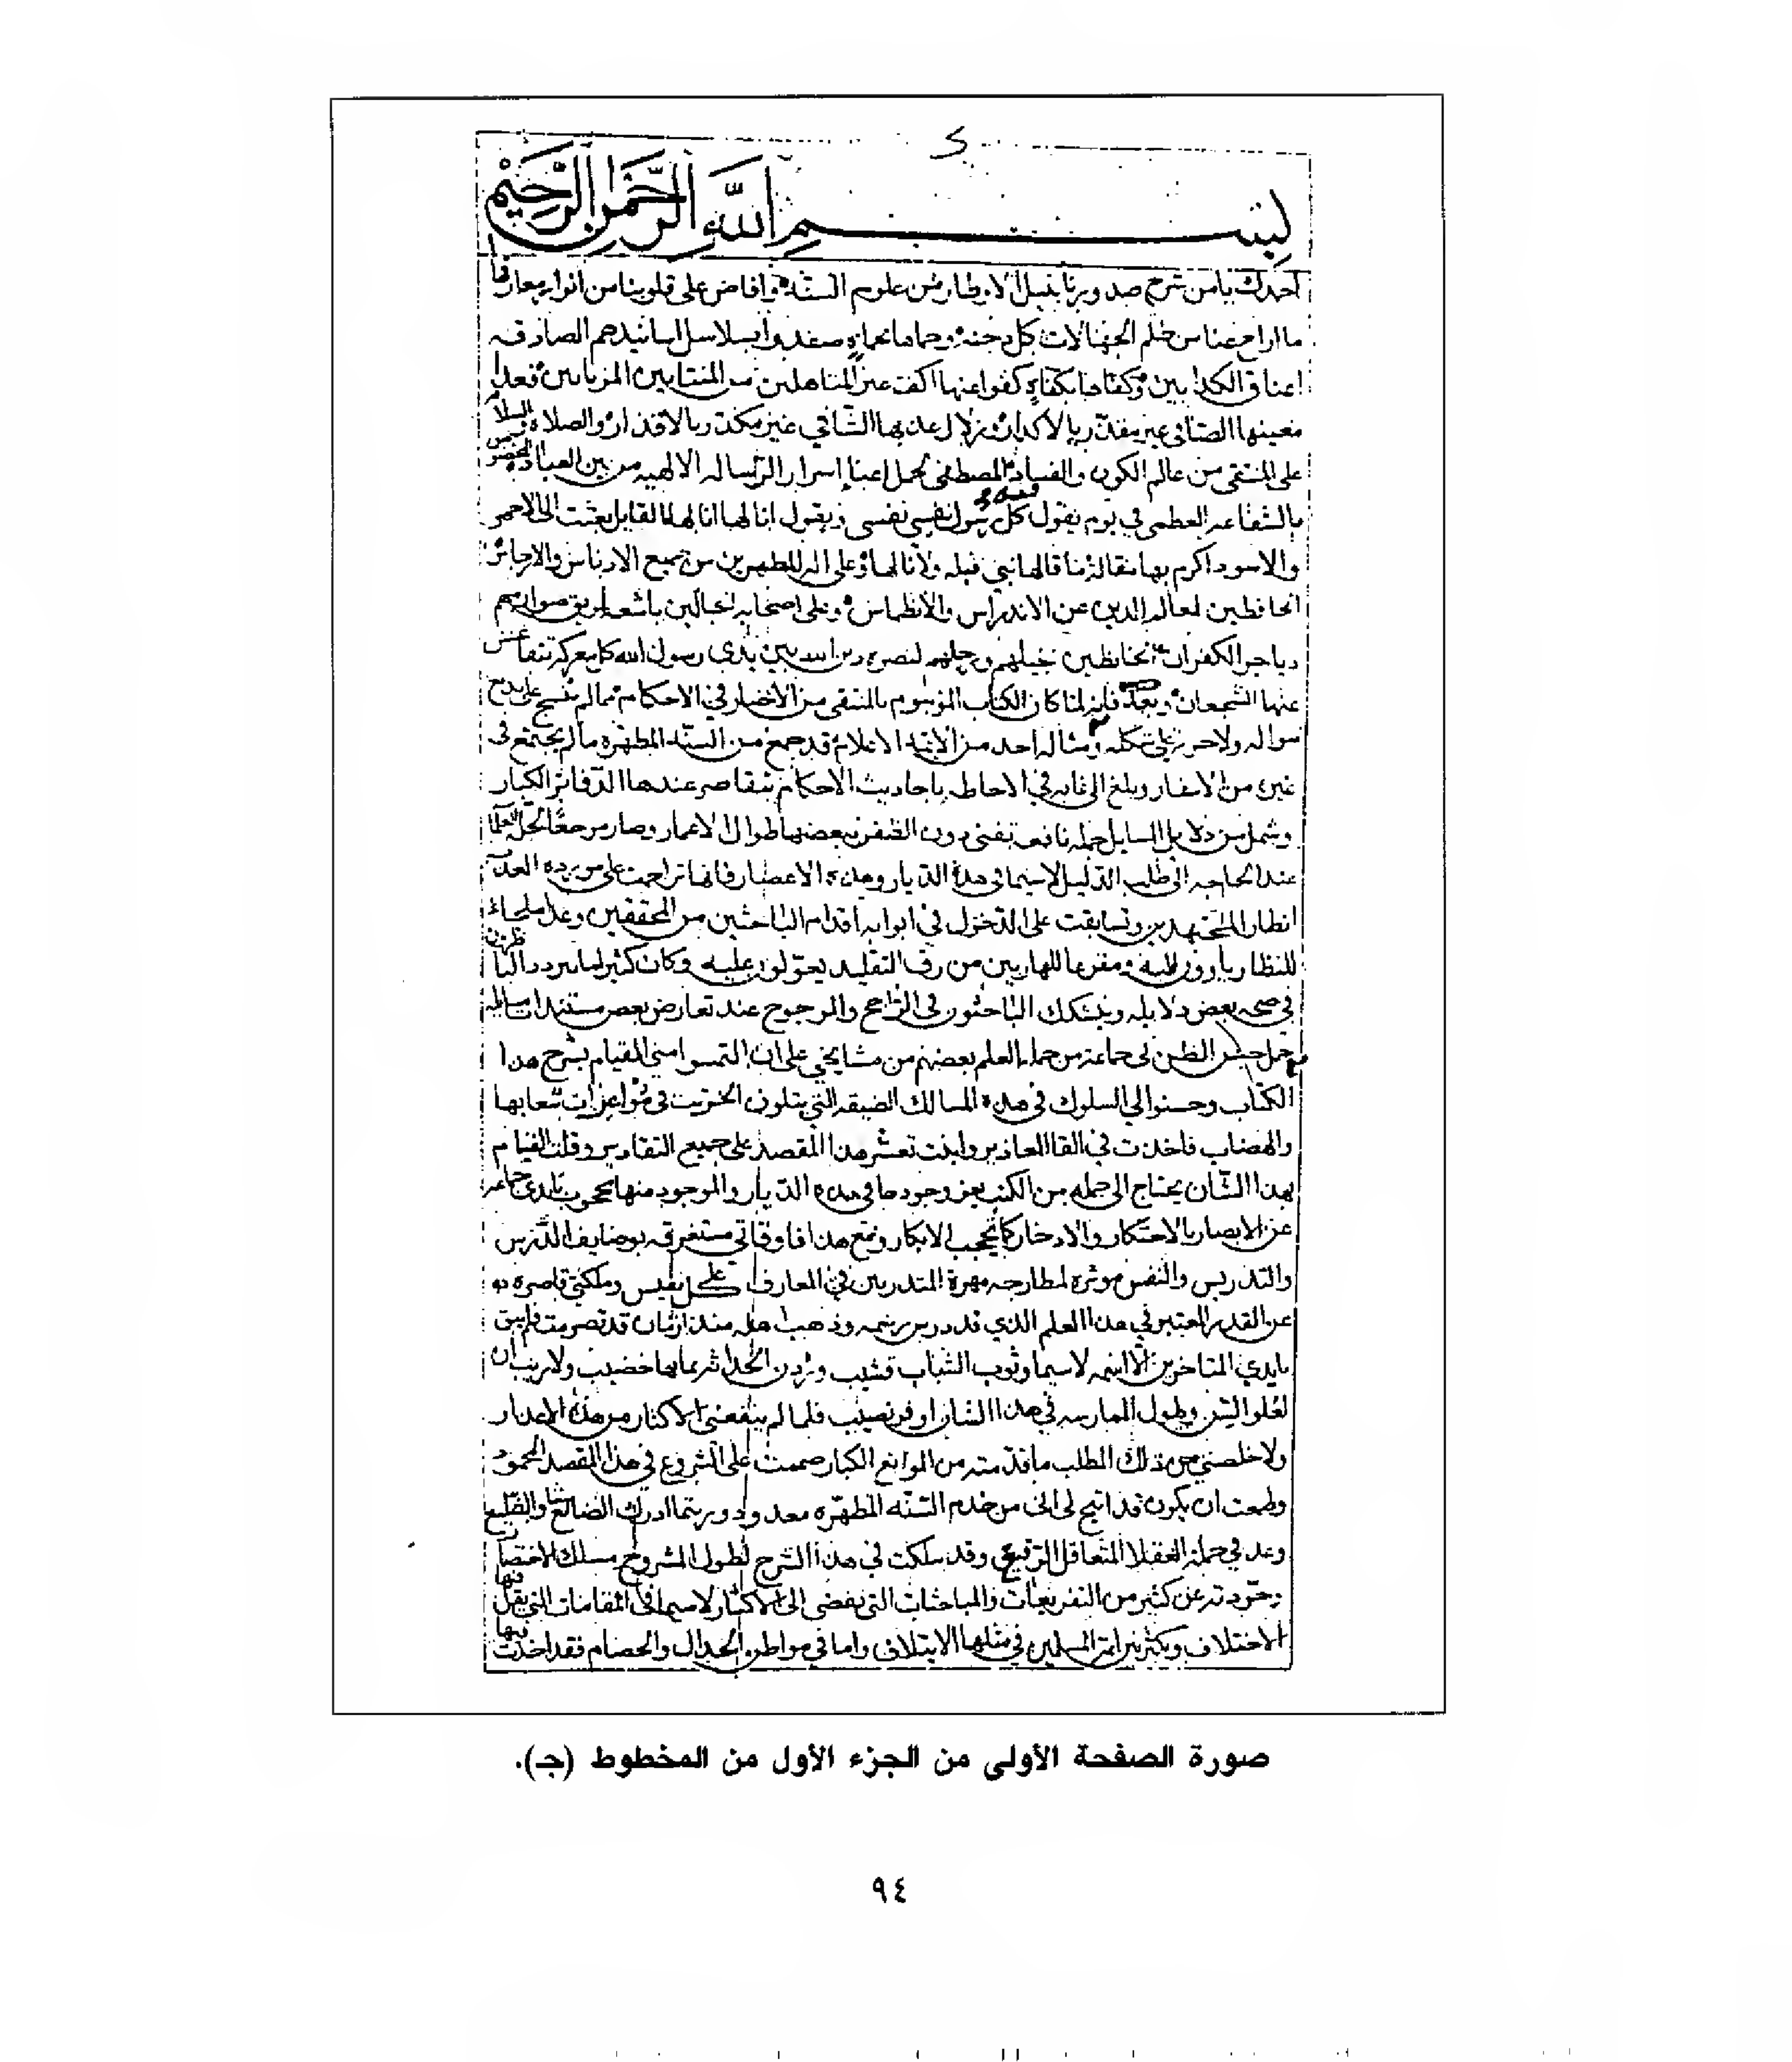 بسم الله الرحمن الرحيم
أحمدك يا من شرح صدورنا بنيل الاوطار من علوم السنة وافاض على قلوبنا من انوار معارفها
ما ازاح عنا من ظلم الجهالات كل دجنة وحماها بحماة صفدوا بسلاسل اسانيدهم الصادقه
اعناق الكذابين وكفاها بكفاة كفوا عنها اكف غير المتاهلين من المنتابين المرتابين فغدا
معينها الصافي غير مقذر بالاكدار وزلال عذبها الشافي غير مكدر بالاقذار والصلاة والسلام
على المنتقى من عالم الكون والفساد المصطفى لحمل اعبا اسرار الرساله الالهيه من بين العباد المخصوص
بالشفاعه العظمى في يوم يقول فيه كل رسول نفسي نفسي ويقول انا لها انا لها القايل بعثت الى الاحمر
والاسود اكرم بها مقالة ما قالها نبي قبله ولا نالها وعلى اله المطهرين من جميع الادناس والارجاس
الحافظين لمعالم الدين عن الاندراس والانطماس وعلى اصحابه الجالين باشعة بريق صوارمهم
دياجر الكفران الخائضين بخيلهم ورجلهم لنصرة دين الله بين يدي رسول الله كل معركة تتقاعس
عنها الشجعان وبعد فانه لما كان الكتاب الموسوم بالمنتقى من الاخبار في الاحكام مما لم ينسج على بديع
منواله ولا حرر على شكله ومثاله احد من الائمة الاعلام قد جمع من السنة المطهرة ما لم يجتمع في
غيره من الاسفار وبلغ الى غايه في الاحاطه باحاديث الاحكام تتقاصر عندها الدفاتر الكبار
وشمل من دلايل المسايل جمله نافعه تفنى دون الظفر ببعضها طوال الاعمار وصار مرجعا لجل العلما
عند الحاجه الى طلب الدليل لا سيما في هذه الديار وهذه الاعصار فانها تزاحمت على مورده العذب
انظار المجتهدين وتسابقت على الدخول في ابوابه اقدام الباحثين من المحققين وغدا ملجاء
للنظار يأوون اليه ومفزعا للهاربين من رق التقليد يعولون عليه وكان كثيرا ما يتردد الناظرون
في صحه بعض دلايله ويتشكك الباحثون في الراجح والمرجوح عند تعارض بعض مستندات مسايله
حمل حسن الظن بي جماعة من حملة العلم بعضهم من مشايخي على ان التمسوا مني القيام بشرح هذا
الكتاب وحسنوا لي السلوك في هذه المسالك الضيقه التي يتلون الخريت في موعرات شعابها
والهضاب فاخذت في القا المعاذير وابنت تعسر هذا المقصد على جميع التقادير وقلت القيام
بهذا الشان يحتاج الى جمله من الكتب يعز وجودها في هذه الديار والموجود منها محجوب بايدي جماعه
عن الابصار بالاحتكار والادخار كما تحجب الابكار ومع هذا فاوقاتي مستغرقه بوضايف الدرس
والتدريس والنفس موثره لمطارحه مهرة المتدربين في المعارف على كل نفيس وملكتي قاصره
عن القدر المعتبر في هذا العلم الذي قد درس رسمه وذهب اهله منذ ازمان قد تصرمت فلم يبق
بايدي المتاخرين الا اسمه لا سيما وثوب الشباب قشيب وردن الحداثه بمائها خضيب ولا ريب ان
لعلو السن وطول الممارسه في هذا الشان اوفر نصيب فلما لم ينفعني الاكثار من هذه الاعذار
ولا خلصني من ذلك المطلب ما قدمته من الموانع الكبار صممت على الشروع في هذا المقصد المحمود
وطمعت ان يكون قد اتيح لي اني من خدم السنه المطهره معدود وربما ادرك الضالع شاو الضليع
وعد في جملة العقلا المتعاقل الرقيع وقد سلكت في هذا الشرح لطول المشروح مسلك الاختصار
وجردته عن كثير من التفريعات والمباحثات التي تفضي الى الاكثار لا سيما في المقامات التي يقل فيها
الاختلاف ويكثر بين ائمة المسلمين في مثلها الايتلاف واما في مواطن الجدال والخصام فقد اخذت فيها
صورة الصفحة الأولى من الجزء الأول من المخطوط (جـ).
٩٤